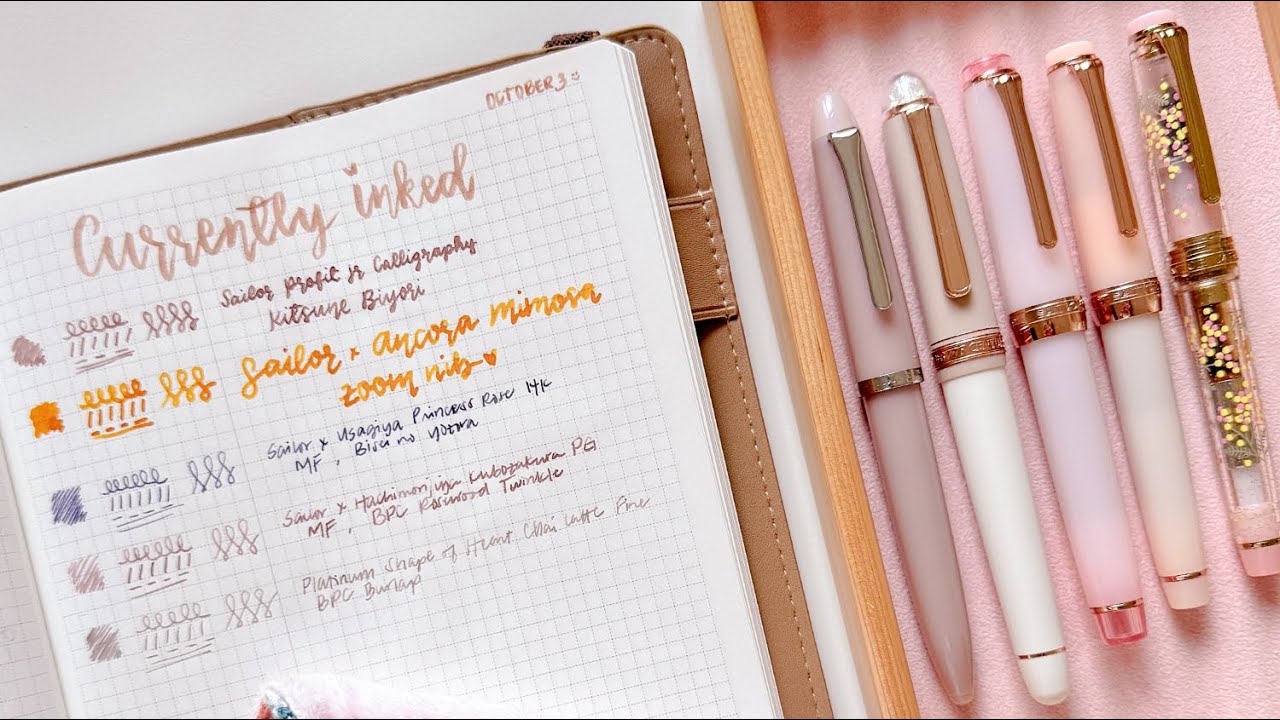 OCTOBER 3
Currently inked
Sailor Profit jr Calligraphy
Kitsune Biyori
Sailor x ancora mimosa
zoom nib
Sailor x Usagiya Princess Rose 14K
MF, Bisei no Yozora
Sailor x Hachimonjiya Kubozakura PG
MF, BPC Rosewood Twinkle
Platinum Shape of Heart Chai Latte Fine
BPC Burlap